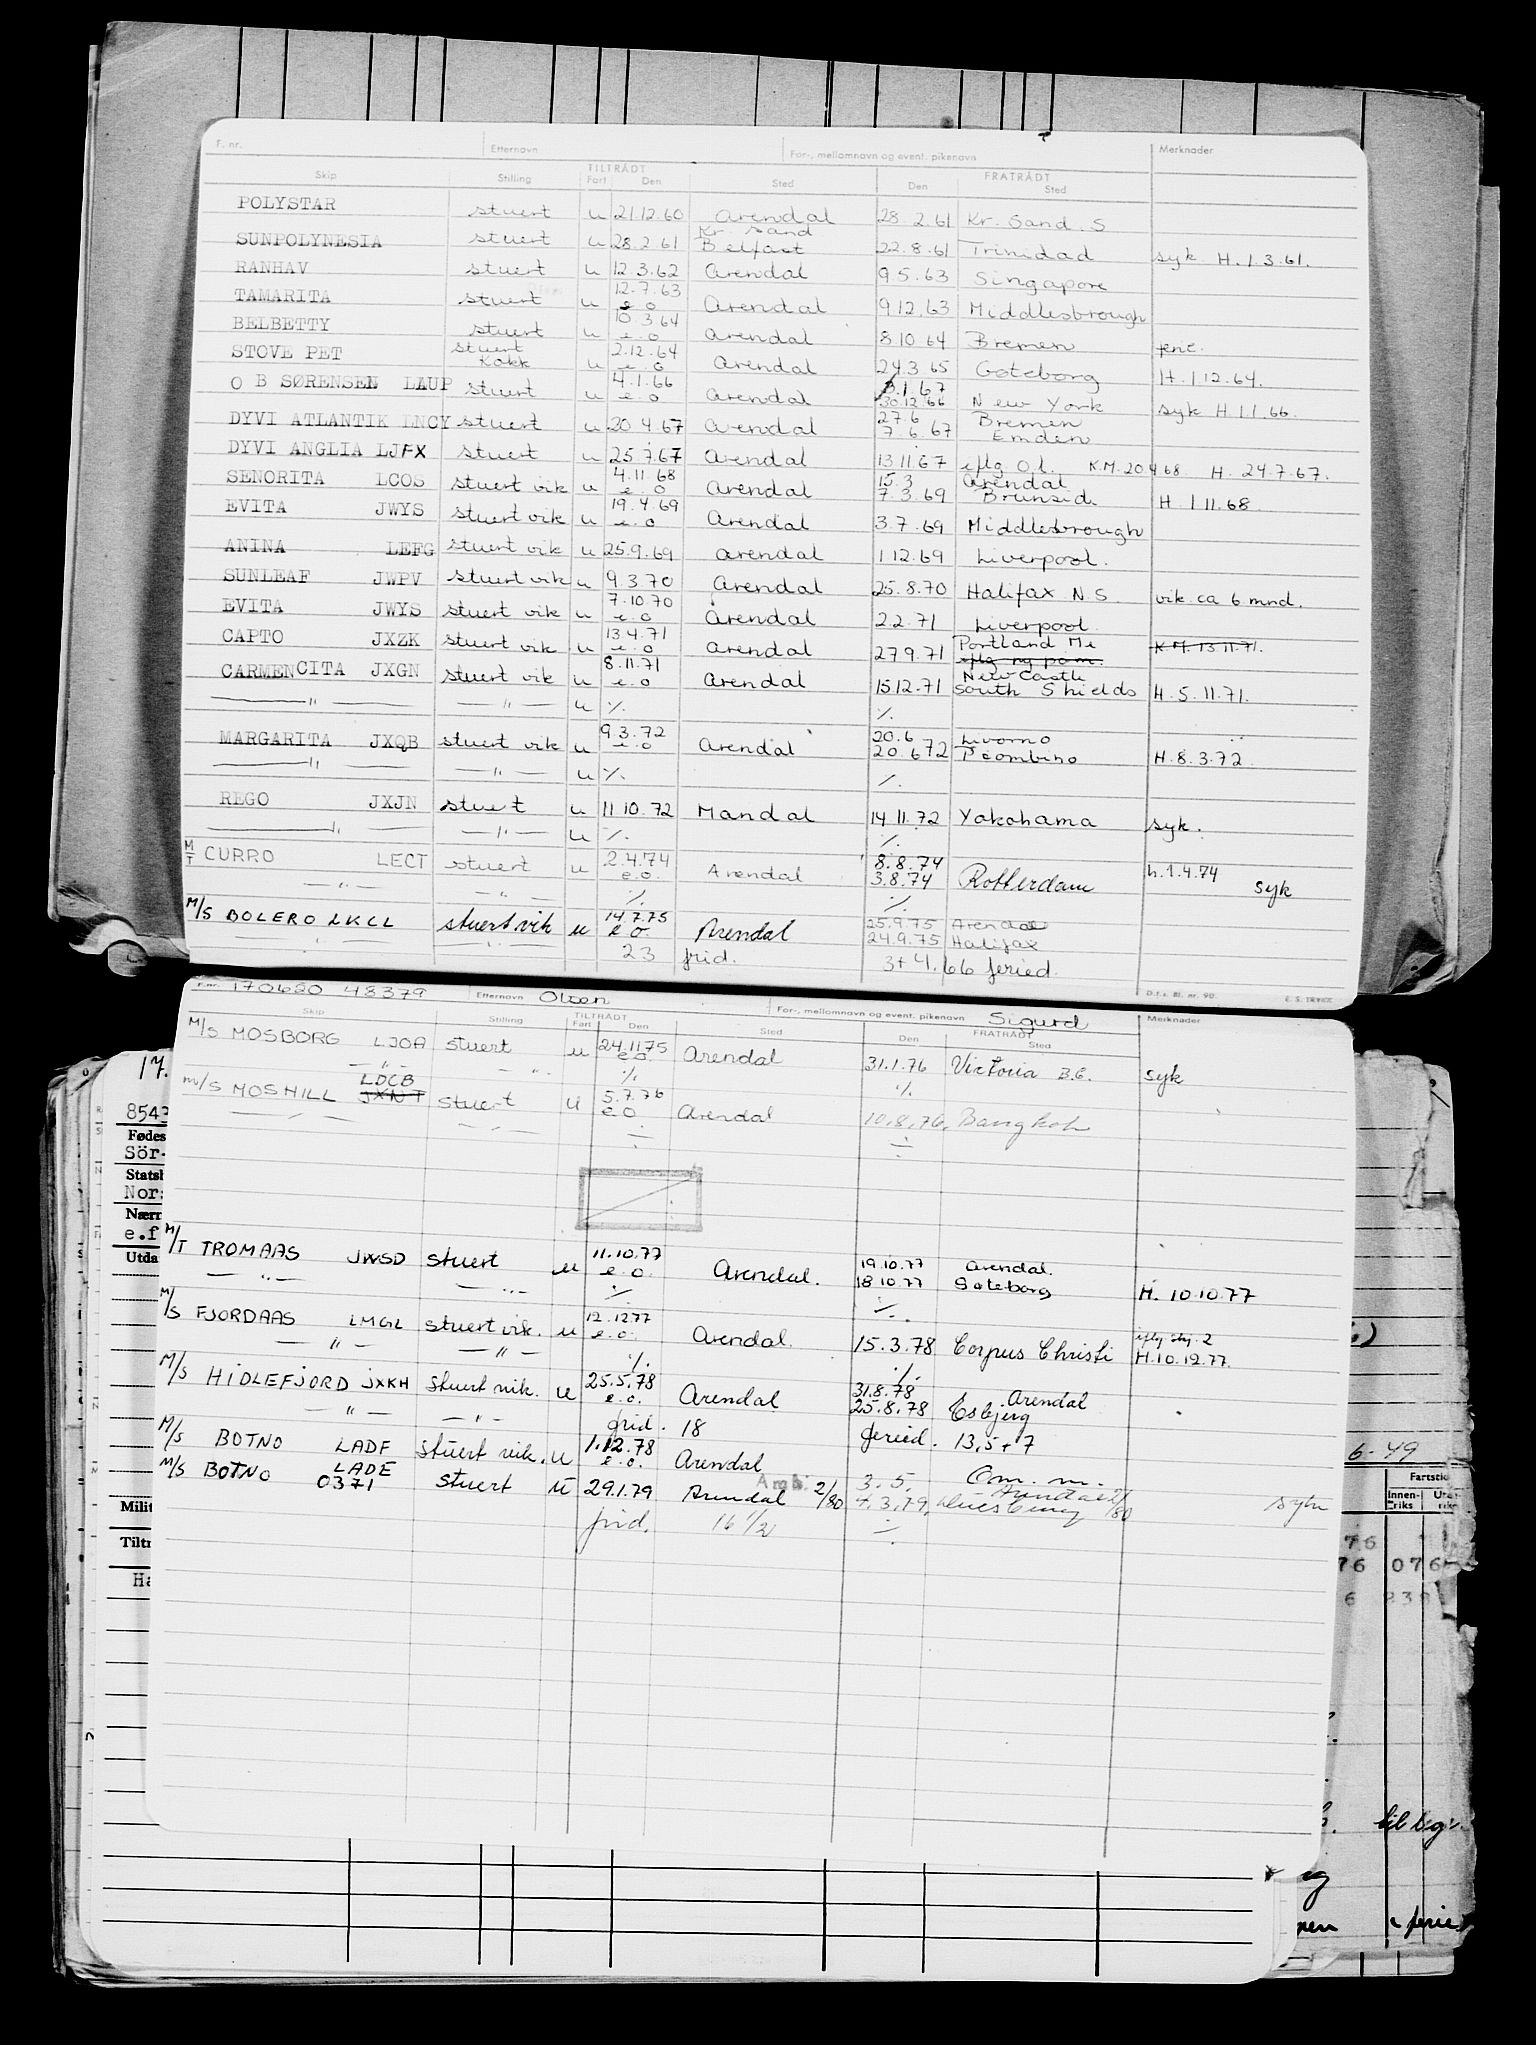 F. nr. Etternavn For-, mellomnavn og event. pikenavn Merknader
TILTRÅDT FRATRÅDT
Skip Stilling Fart Den Sted Den Sted
POLYSTAR stuert u 21.12.60 Arendal 28.2.61 Kr. Sand. S
Kr. Sand
SUNPOLYNESIA stuert u 28.2.61 Belfast 22.8.61 Trinidad syk H. 1 3.61.
RANHAV stuert u 12.3.62 Arendal 9.5.63 Singapore
12.7.63
TAMARITA stuert u e.o Arendal 9.12.63 Middlesbrough
10.3.64
BELBETTY stuert u e.o Arendal 8.10 64 Bremen ferie.
stuert 2.12.64
STOVE PET Kokk u e.o Arendal 24.3.65 Göteborg H. 1 12.64.
4.1.66 3.1.67
O B SØRENSEN LAUP stuert u e.o Arendal 30.12.66 New York syk H.1.1.66.
27.6 Bremen
DYVI ATLANTIK LNCY stuert u 20.4.67 Arendal 7.6.67 Emden
DYVI ANGLIA LJFX stuert u 25.7.67 Arendal 13.11.67 eflg. o.l. K.M. 20 4 68. H. 24.7.67.
4.11.68 15.3 Arendal
SENORITA LCOS stuert vik u e.o Arendal 7.3.69 H. 1 11.68
19.4.69
EVITA JWYS stuert vik u e.o Arendal 3.7.69 Middlesbrough
ANINA LEFG stuert vik u 25.9.69 Arendal 1 12.69 Liverpool.
SUNLEAF JWPV stuert vik u 9.3.70 Arendal 25.8.70 Halifax N S vik. ca 6 mnd.
7.10.70
EVITA JWYS stuert vik u e.o Arendal 2.2.71 Liverpool.
13.4.71 Portland Me
CAPTO JXZK stuert vik u e.o Arendal 27.9.71 K.M. 13.11.71.
8.11.71 New Castle
CARMENCITA JXGN stuert vik u e.o Arendal 15.12.71 South Shields H. 5. 11.71.
— " — — " — u %. %.
9.3.72 20.6 Livorno
MARGARITA JXQB stuert vik u e.o Arendal 20.6.72 Piombino H. 8. 3.72.
— " — — " — u %. %.
REGO JXJN stuert u 11.10.72 Mandal 14.11.72 Yokohama syk.
— " — — " — u %. %.
2.4.74 8.8.74
M/T CURRO LECT stuert u e.o. Arendal 3.8.74 Rotterdam h.1.4.74 syk
— " — — " — %. %.
14.7.75 25.9.75 Arendal
M/S BOLERO LKCL stuert vik u e.o. Arendal 24.9.75 Halifax
" " 23 frid. 3+4.66 feried.
D.f.s. Bl. nr. 90. E. S. TRYKK
F.nr. 170620 48379 Etternavn Olsen For-, mellomnavn og event. pikenavn Sigurd Merknader
TILTRÅDT FRATRÅDT
Skip Stilling Fart Den Sted Den Sted
24.11.75
M/S MOSBORG LJOA stuert u e.o. Arendal 31.1.76 Victoria B.C. syk
— " — — " — %. %.
LDCB 5.7.76
M/S MOSHILL JXNT stuert u e.o Arendal 10.8.76. Bangkok
— " — — " — ÷ ÷
11.10.77 19.10.77 Arendal.
M/T TROMAAS JWSD stuert u e.o. Arendal. 18.10.77 Göteborg H. 10.10.77
— " — — " — %. %.
12.12.77 eflg. stj. 2
M/S FJORDAAS LMGL stuert vik. u e.o. Arendal. 15.3.78 Corpus Christi H.10.12.77.
— " — — " — %. %.
25.5.78 31.8.78 Arendal
M/S HIDLEFJORD JXKH stuert vik. u e.o. Arendal 25.8.78 Esbjerg
— " — — " — frid. 18 feried. 13,5 + 7
1.12.78
M/S BOTNO LADF stuert vik. u e.o. Arendal
LADE 3.5. Om. m.
M/S BOTNO 0371 stuert u 29.1.79 Arendal 2/80 4.3.79, 2/80 sykm
frid. 16 1/2 ÷
17.
8543
Fødes
Sör-
Statsb
Nors
Nærm
e.f
Utda
Milit
Tiltr
Ha
6-49
Fartstid
Innen-
riks
76
76 076
6 239
til beg.
ferie